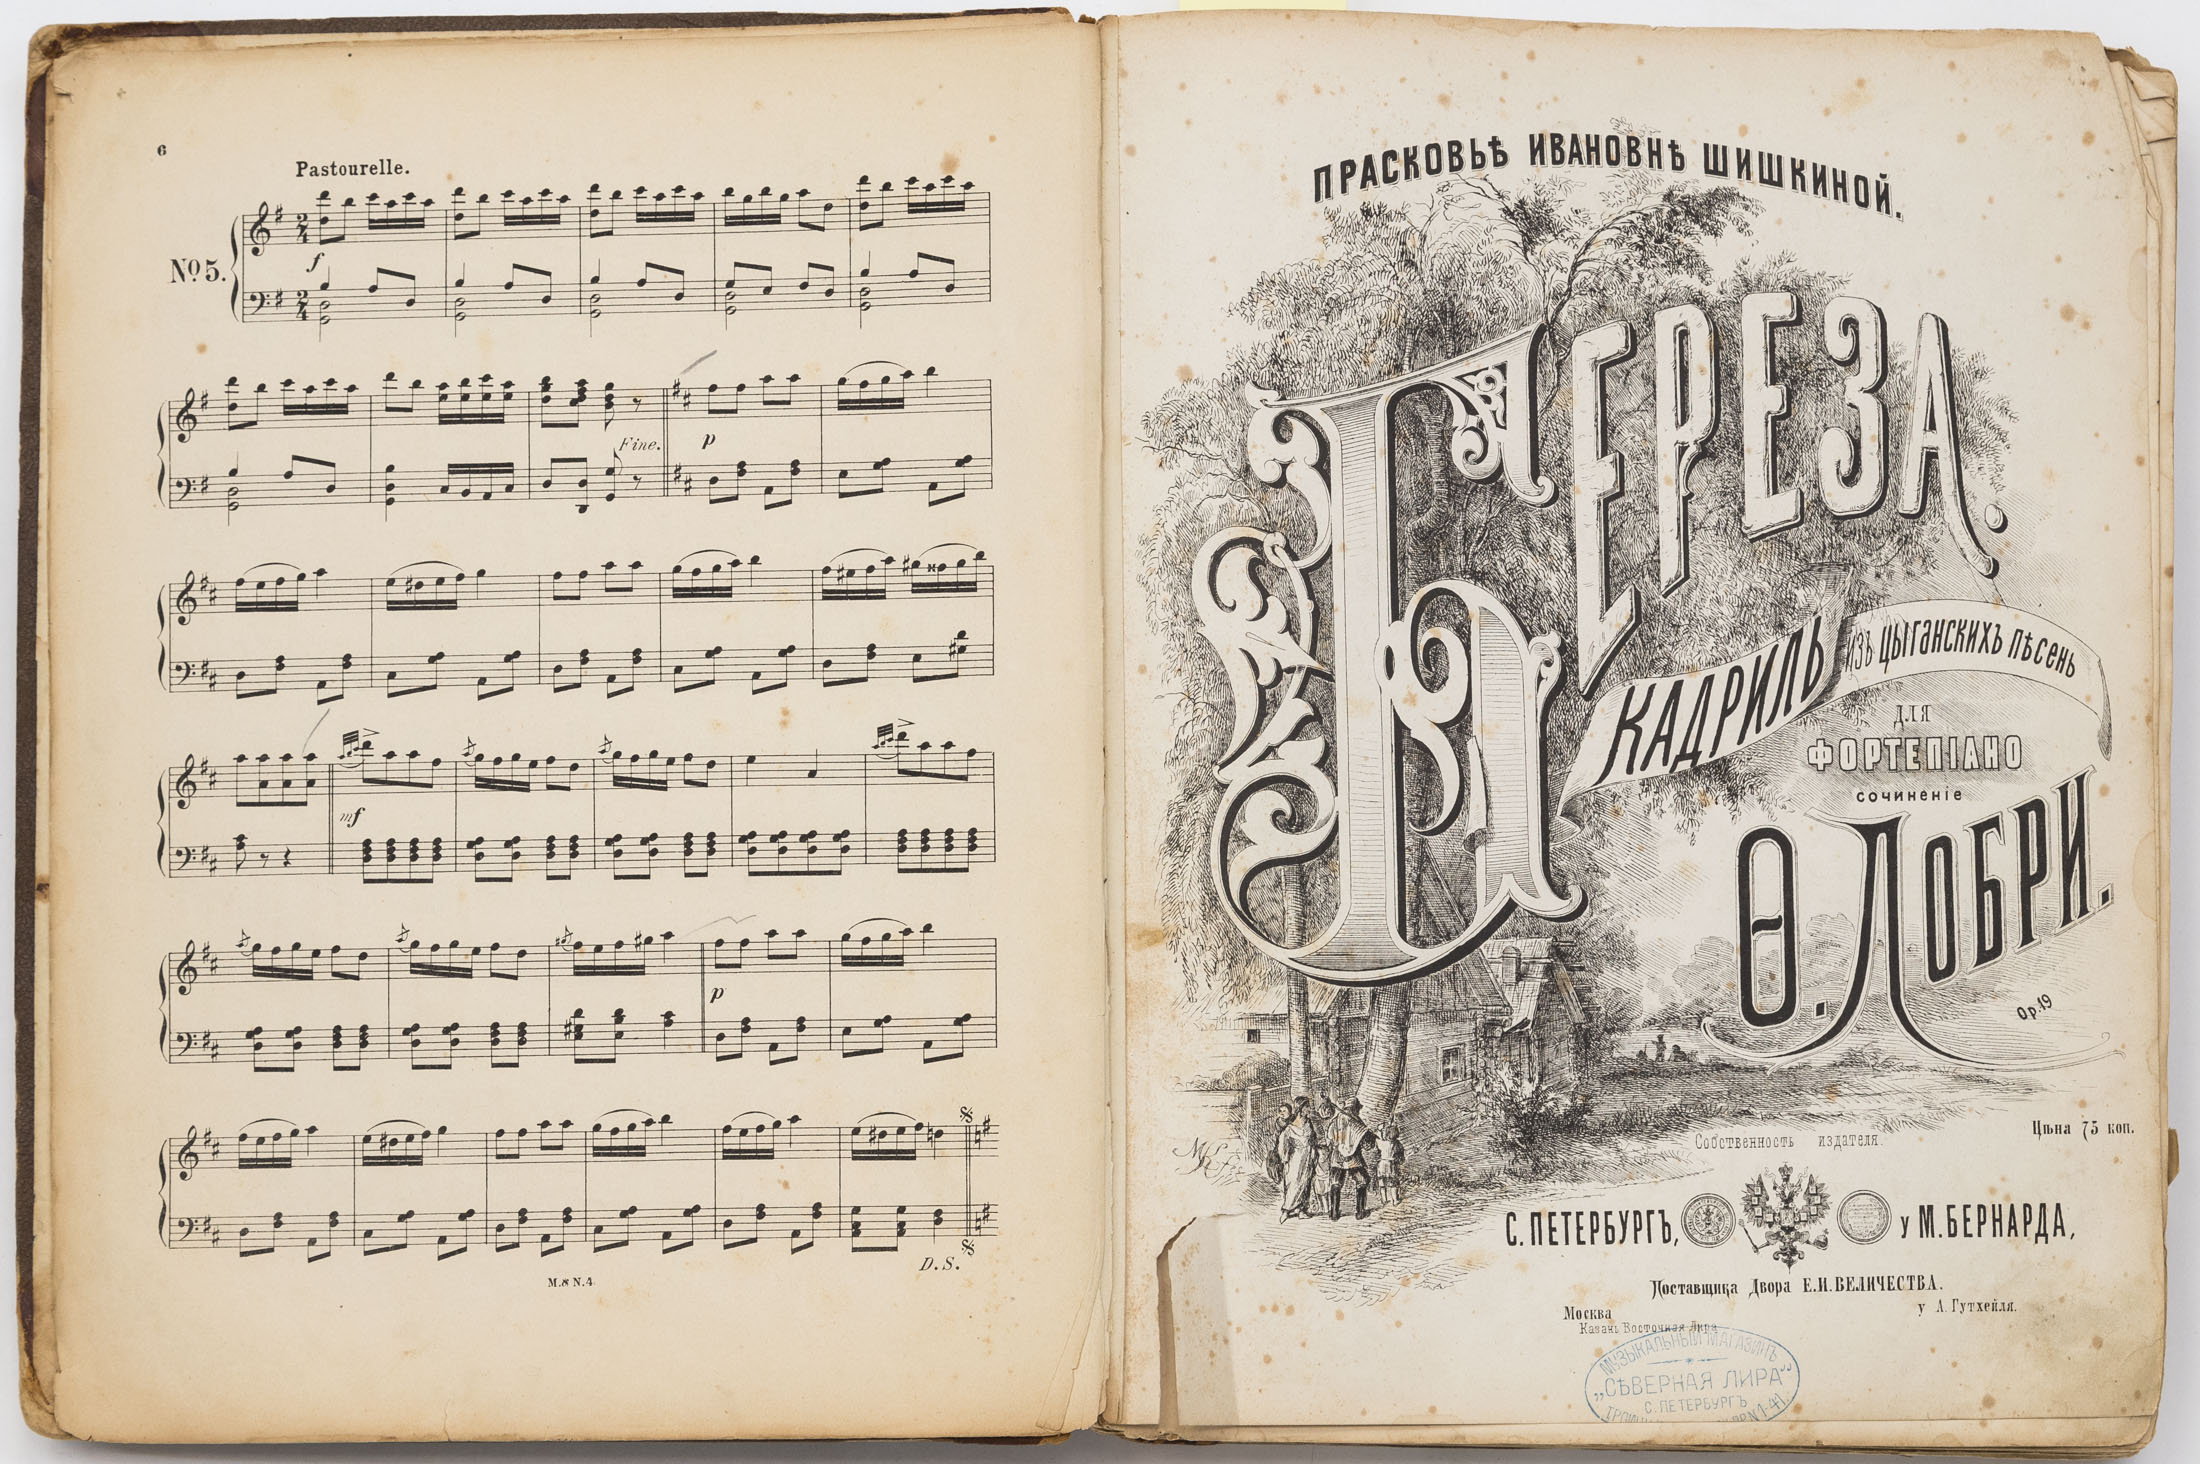 6
Pastourelle.
№ 5.
f
Fine.
p
mf
p
D. S.
M. & N. 4.
ПРАСКОВЬѢ ИВАНОВНѢ ШИШКИНОЙ.
БЕРЕЗА.
КАДРИЛЬ ИЗЪ ЦЫГАНСКИХЪ ПѢСЕНЬ
ДЛЯ
ФОРТЕПІАНО
СОЧИНЕНІЕ
Ѳ. ЛОБРИ.
Op. 19
Цѣна 75 коп.
Собственность издателя.
С. ПЕТЕРБУРГЪ, у М. БЕРНАРДА,
Поставщика Двора Е.И.ВЕЛИЧЕСТВА.
Москва у А. Гутхейля.
Казань Восточная Лира
МУЗЫКАЛЬНЫЙ МАГАЗИНЪ
„СѢВЕРНАЯ ЛИРА"
С. ПЕТЕРБУРГЪ